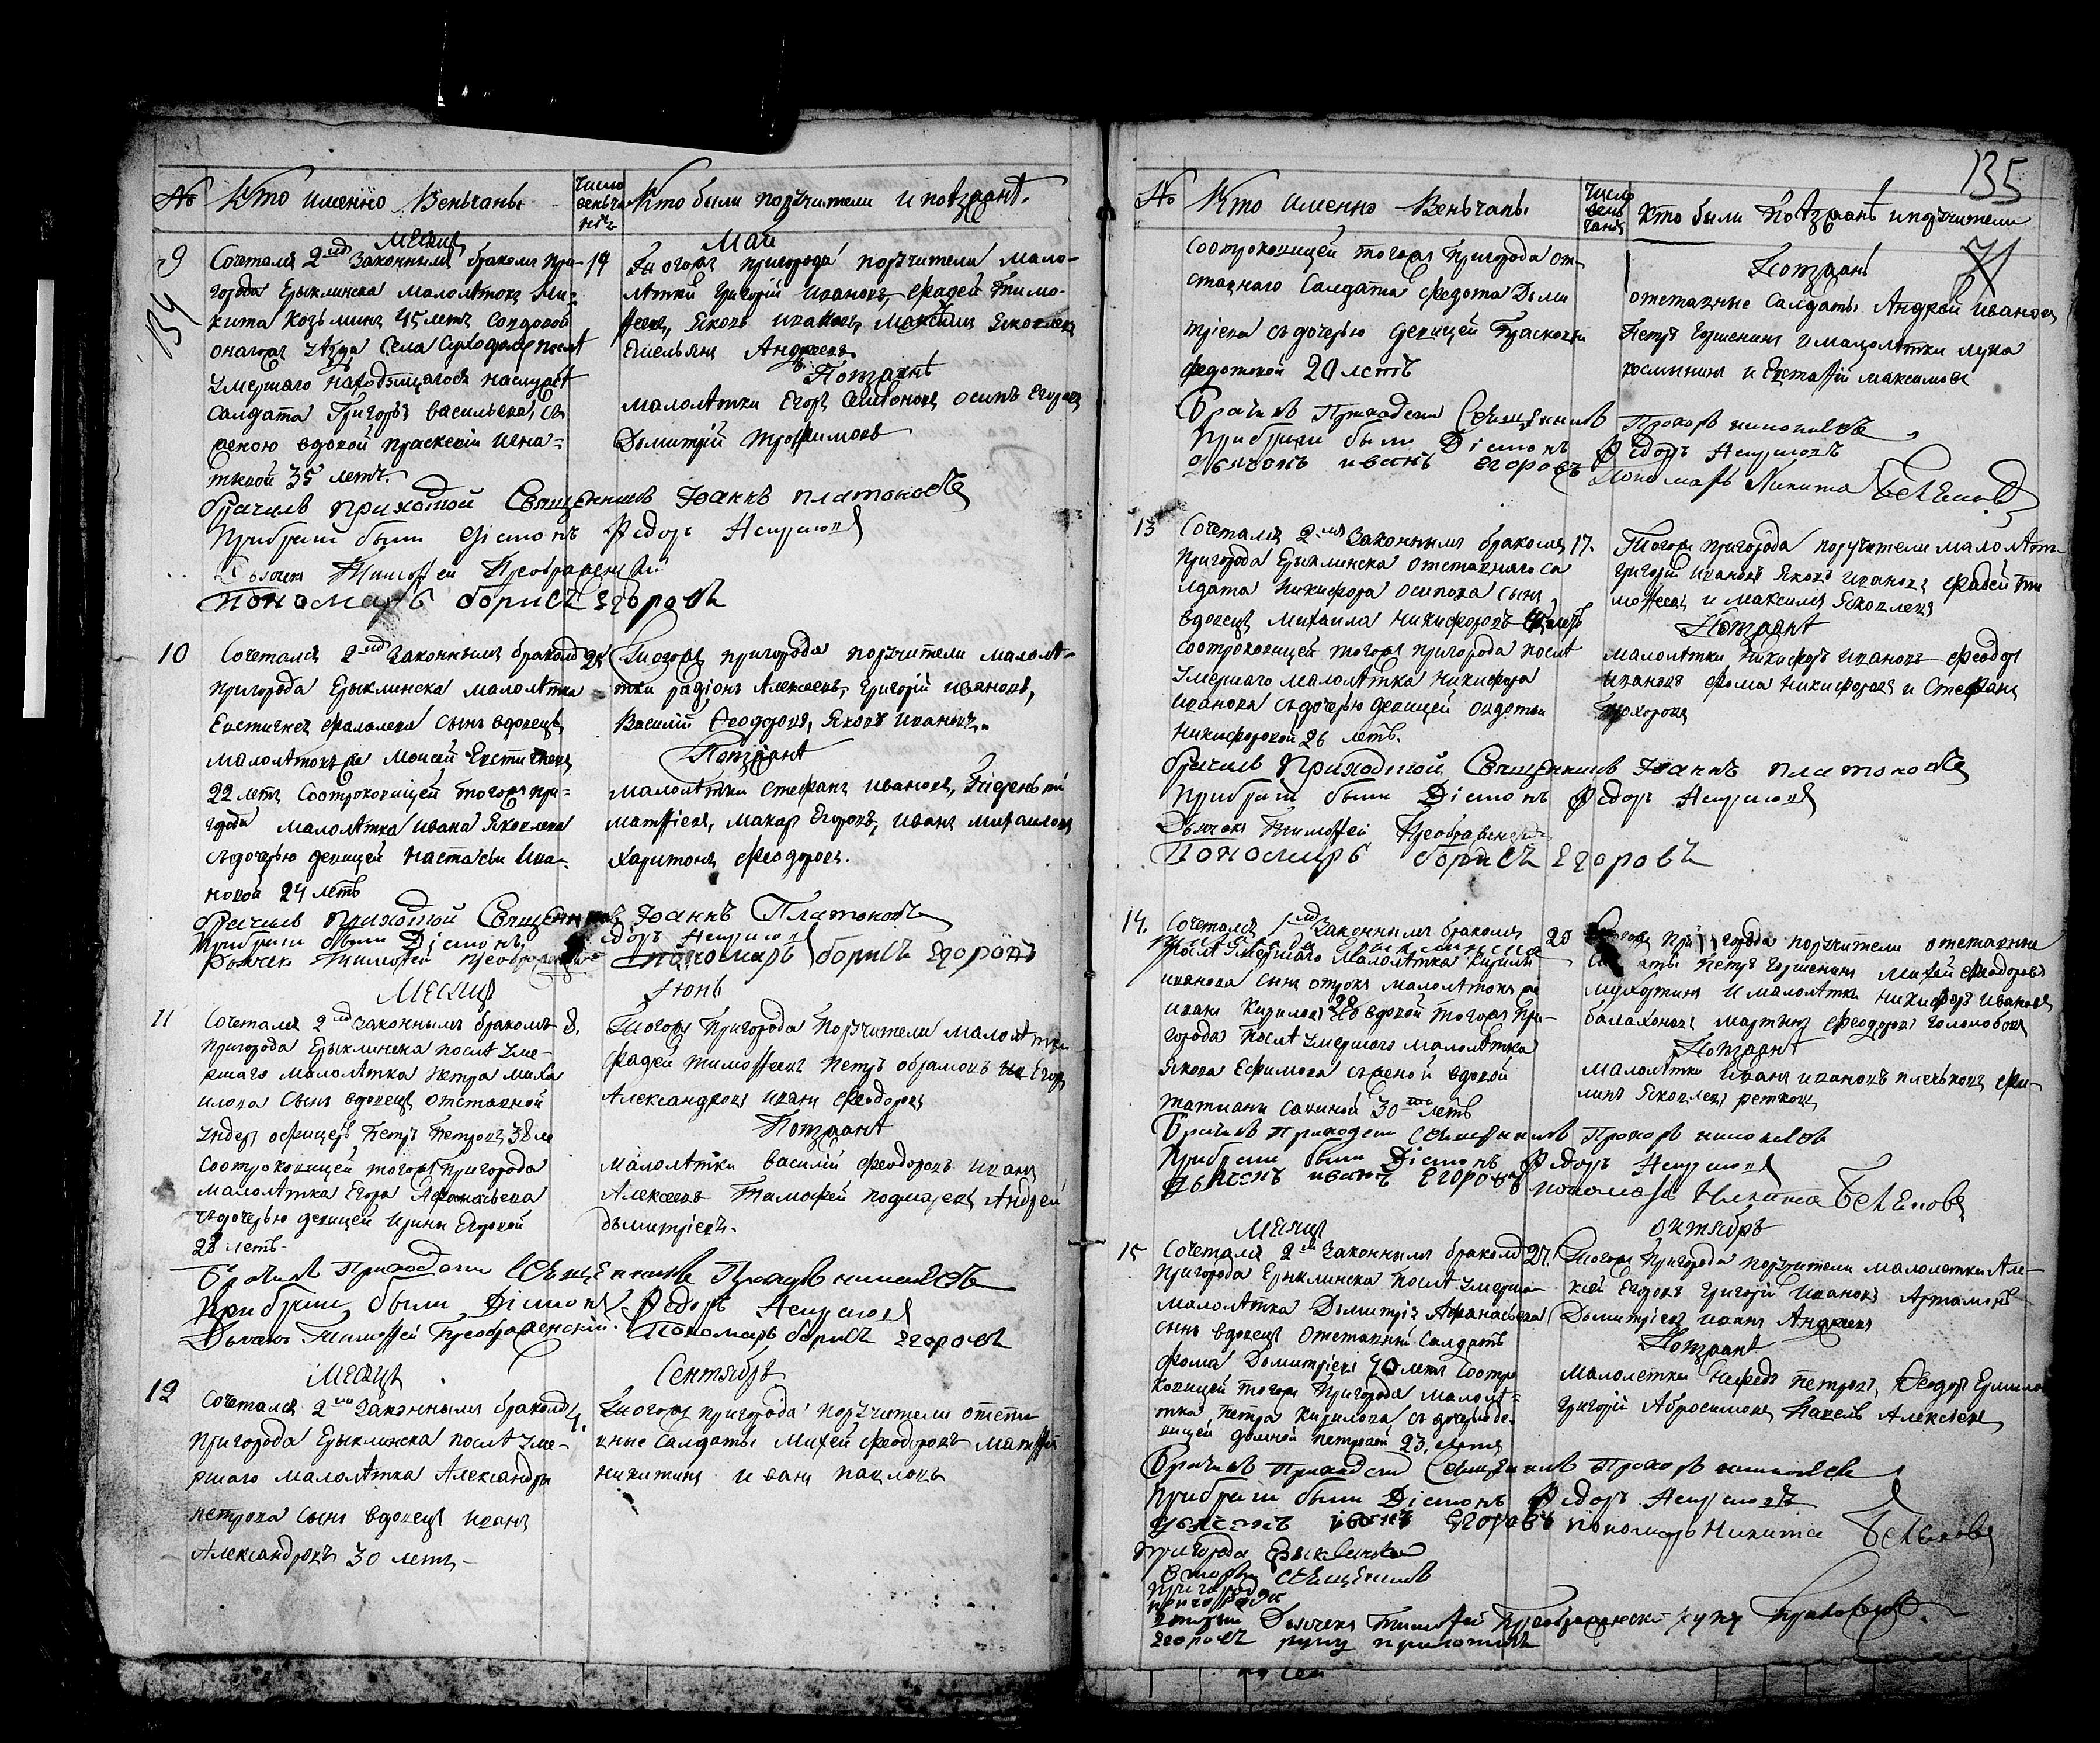 № Кто именно Венчаны
число венчанiя
Кто были поручители и поезжанѣ.
Месяцъ Маiй
9 Сочетался 2мъ законнымъ бракомъ при-
города Ерыклинска малолѣтокъ Ни-
кита Козьминъ 45 летъ Совдовой
онагожъ уѣзда Села Суходолу послѣ
умершаго находящагося наслужбѣ
салдата Григорья васильева, съ
женою вдовой праскевiи игна-
тьевой 35 летъ.
14
тогожъ пригорода поручители мало-
лѣтки григорiй ивановъ, фадей тимо-
феевъ, яковъ ивановъ, максимъ яковлевъ
Емельянъ Андреевъ
Поезжанѣ
малолѣтки Егоръ осипъ Егоровъ
Дьмитрiй трофимовъ
брачилъ приходской Священникъ Iоаннъ платоновъ
При браки были Дiаконъ Федоръ
Дьячекъ Тимофей Преображенскiй
пономарь борисъ Егоровъ
10 Сочетался 2мъ законнымъ бракомъ
пригорода Ерыклинска малолѣтка
Евстигнея фалалеева сынъ вдовецъ
малолѣтокъ же Моисей Евстигнеевъ
22 летъ Соотроковицей тогожъ при-
города малолѣтка ивана яковлева
съдочерью девицей настасьи ива-
новой 24 летъ
25
тогожъ пригорода поручители малолѣ-
тки радiонъ Алексеевъ, григорiй ивановъ,
Василiй Феодоровъ, Яковъ ивановъ.
Поезжанѣ
малолѣтки стефанъ ивановъ,
матфiевъ, макаръ Егоровъ, иванъ михаиловъ
харитонъ феодоровъ.
брачилъ приходской Священникъ Iоаннъ Платоновъ
При браки были Дiаконъ Федоръ
Дьячекъ Тимофей преображенскiй пономарь борисъ Егоровъ
Месяцъ Iюнь
11 Сочетался 2мъ законнымъ бракомъ
пригорода Ерыклинска послѣ уме-
ршаго малолѣтка петра миха
илова сынъ вдовецъ отставной
ундеръ офицеръ петръ петровъ 38 ле
соотроковицей тогожъ пригорода
малолѣтка Егора Афанасьева
съдочерью девицей ирины Егоровой
28 летъ.
8.
тогожъ пригорода поручители малолѣтки
фадей тимофеевъ петръ обрамовъ Егоръ
Александровъ иванъ феодоровъ
Поезжанѣ
малолѣтки василiй феодоровъ иванъ
Алексеевъ Тимофей Андрей
дьмитрiевъ.
брачилъ приходской Священникъ Прохоръ николаевъ
При браки были Дiаконъ Федоръ
Дьячекъ Тимофей Преображенскiй. Пономарь борисъ Егоровъ
Месяцъ Сентябрь
12 Сочетался 2мъ законнымъ бракомъ
пригорода Ерыклинска послѣ уме-
ршаго малолѣтка Александры
петрова сынъ вдовецъ иванъ
Александровъ 30 летъ
4.
тогожъ пригорода поручители отста
вные салдаты Михей феодоровъ матфей
никитинъ иванъ павловъ
134
135
№ Кто именно Венчаны
число венчанiя
Кто были поезжанѣ и поручители
соотроковицей тогожъ пригорода от-
ставнаго Салдата федота Дьми
трiева съдочерью девицей Прасковьи
федотовой 20 летъ
Поезжанѣ
71
отставные салдаты Андрей ивановъ
петръ Горшенинъ и малолѣтки лука
космынинъ и Евстафiй максимовъ
Брачилъ Приходской Священникъ Прохоръ николаевъ
При браки были Дiаконъ Федоръ
Дьячекъ иванъ Егоровъ Пономарь Никита
13 Сочетался 2мъ законнымъ бракомъ
пригорода Ерыклинска отставнаго са
лдата никифора осипова сынъ
вдовецъ михаила никифоровъ летъ
соотроковицей тогожъ пригорода послѣ
умершаго малолѣтка никифора
иванова съдочерью девицей овдотьи
никифоровой 26 летъ.
17.
тогожъ пригорода поручители малолѣт-
григорiй ивановъ яковъ ивановъ фадей ти
мофеевъ и максимъ яковлевъ
Поезжанѣ
малолѣтки никифоръ ивановъ феодоръ
ивановъ фома никифоровъ и Стефанъ
прохоровъ
брачилъ Приходской Священникъ Iоаннъ платоновъ
При браки были Дiаконъ Федоръ
Дьячекъ Тимофей Преображенскiй
Пономарь борисъ Егоровъ
14. Сочетался 1мъ законнымъ бракомъ
пригорода Ерыклинска
послѣ умершаго малолѣтка кирилы
иванова сынъ отрокъ малолѣтокъ же
иванъ кириловъ вдовой тогожъ при-
города послѣ умершаго малолѣтка
якова Ефимова съженой вдовой
татианы савиной 30 летъ
20
тогожъ пригорода поручители отставные
салдаты петръ Горшенинъ михей феодоровъ
и малолѣтки никифоръ ивановъ
балахоновъ мартынъ феодоровъ голомобовъ
Поезжанѣ
малолѣтки иванъ ивановъ фи-
липъ яковлевъ
Брачилъ Приходской Священникъ Прохоръ николаевъ
При браки были Дiаконъ Федоръ
Дьячекъ иванъ Егоровъ пономарь Никита
Месяцъ октябрь
15 Сочетался 2мъ законнымъ бракомъ
пригорода Ерыклинска послѣ умершаго
малолѣтка Дьмитрiя Афанасьева
сынъ вдовецъ отставный Салдатъ
фома Дьмитрiевъ 40 летъ Соотро
ковицей тогожъ пригорода малолѣ-
тка петра кирилова съ дочерью де-
вицей домной петровой 23, летъ
27.
тогожъ пригорода поручители малолетки Але-
ксей Егоровъ григорiй ивановъ Артамонъ
Дьмитрiевъ иванъ Андреевъ
Поезжанѣ
малолетки нефедъ петровъ, Феодоръ Ермило
григорiй Абросимовъ Павелъ Алексѣевъ
Брачилъ Приходской Священникъ Прохоръ николаевъ
При браки были Дiаконъ Федоръ
Дьячекъ иванъ Егоровъ пономарь Никита
пригорода Ерыклинска
священникъ
Дьячекъ Тимофей Преображенскiй руку приложилъ
Егоровъ руку приложилъ